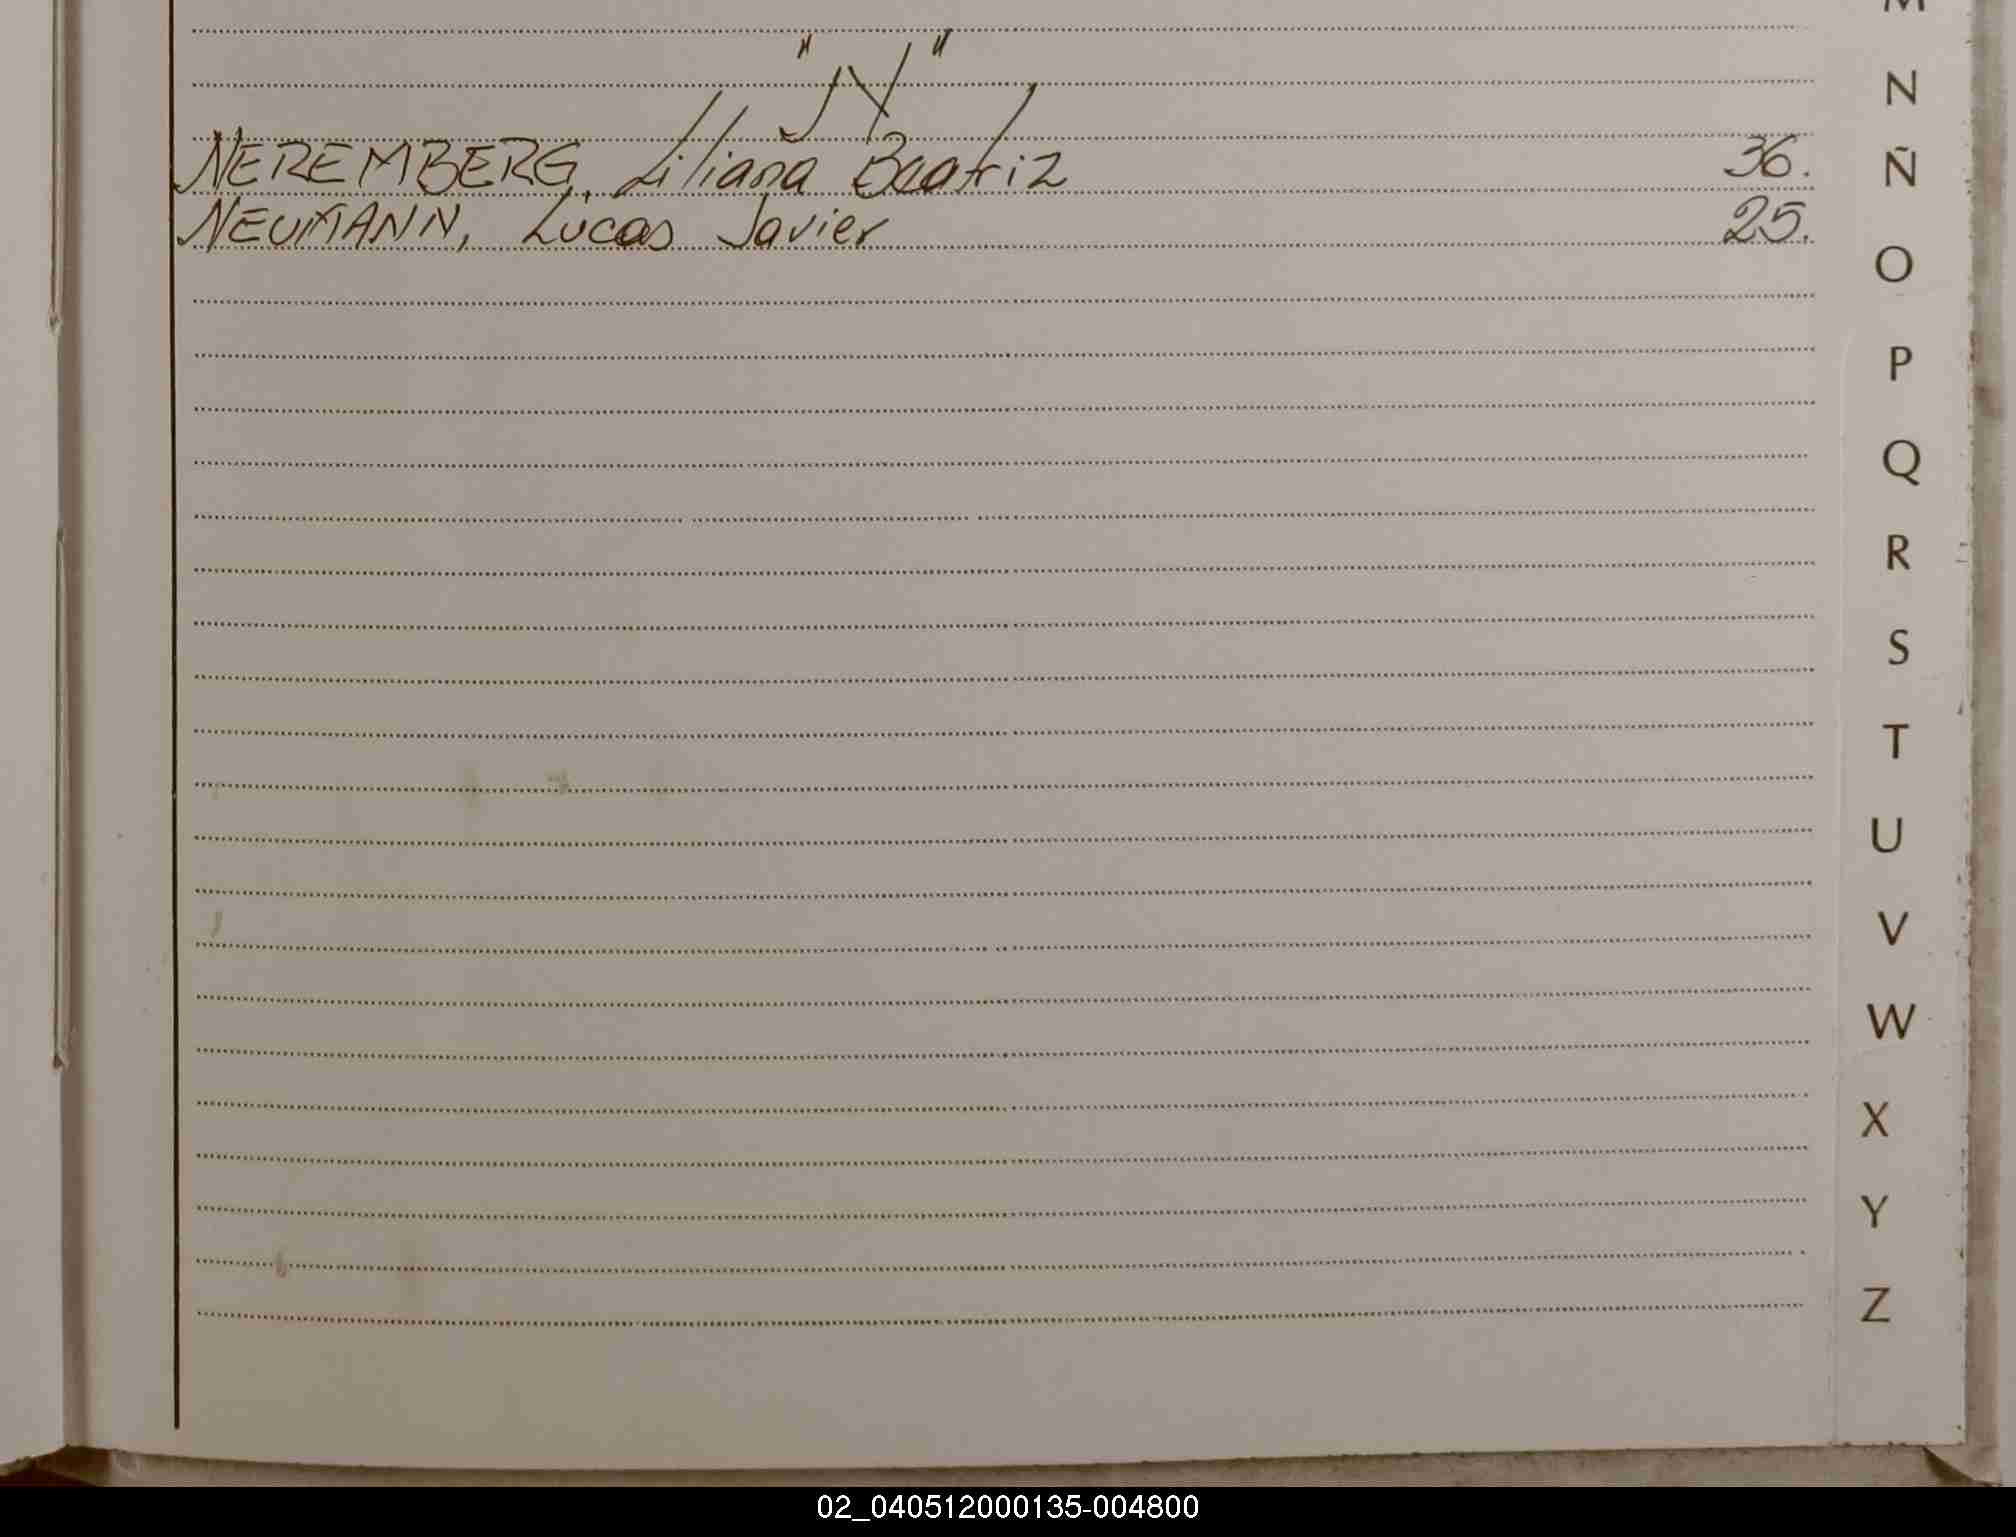 M
"N"
N
NEREMBERG, Liliana Beatriz 36.
Ñ
NEUMANN, Lucas Javier 25.
O
P
Q
R
S
T
U
V
W
X
Y
Z
02_040512000135-004800